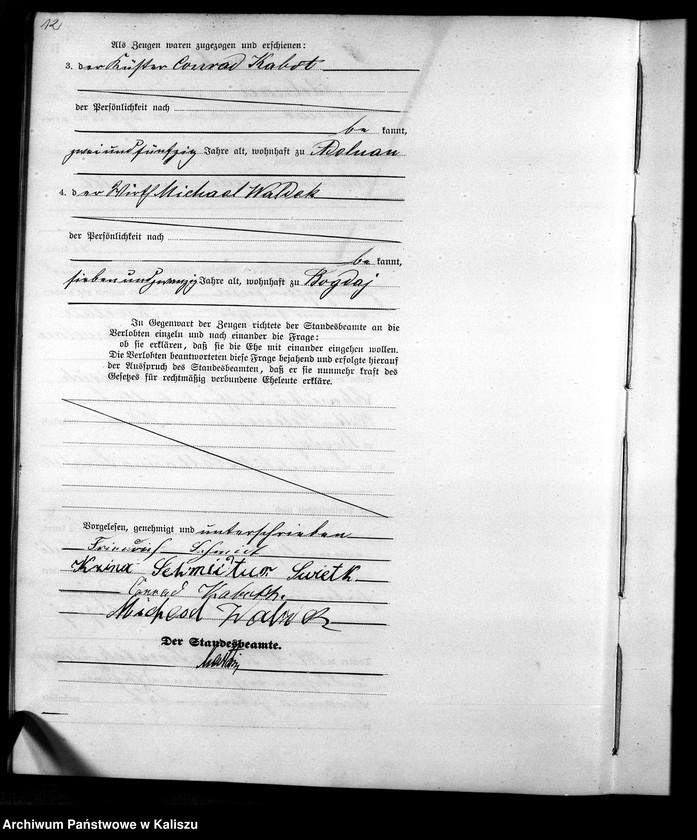 12
Als Zeugen waren zugezogen und erschienen:
3. der Küster Conrad Kabot
der Persönlichkeit nach
be kannt,
zweiundfünfzig Jahre alt, wohnhaft zu Adelnau
4. der Wirth Michael Waldek
der Persönlichkeit nach
be kannt,
sieben undzwanzig Jahre alt, wohnhaft zu Bogdaj
In Gegenwart der Zeugen richtete der Standesbeamte an die
Verlobten einzeln und nach einander die Frage:
ob sie erklären, daß sie die Ehe mit einander eingehen wollen.
Die Verlobten beantworteten diese Frage bejahend und erfolgte hierauf
der Ausspruch des Standesbeamten, daß er sie nunmehr kraft des
Gesetzes für rechtmäßig verbundene Eheleute erkläre.
Vorgelesen, genehmigt und unterschrieben
Friedrich Schmidt
Schmidt
Conrad
Der Standesbeamte.
Archiwum Państwowe w Kaliszu